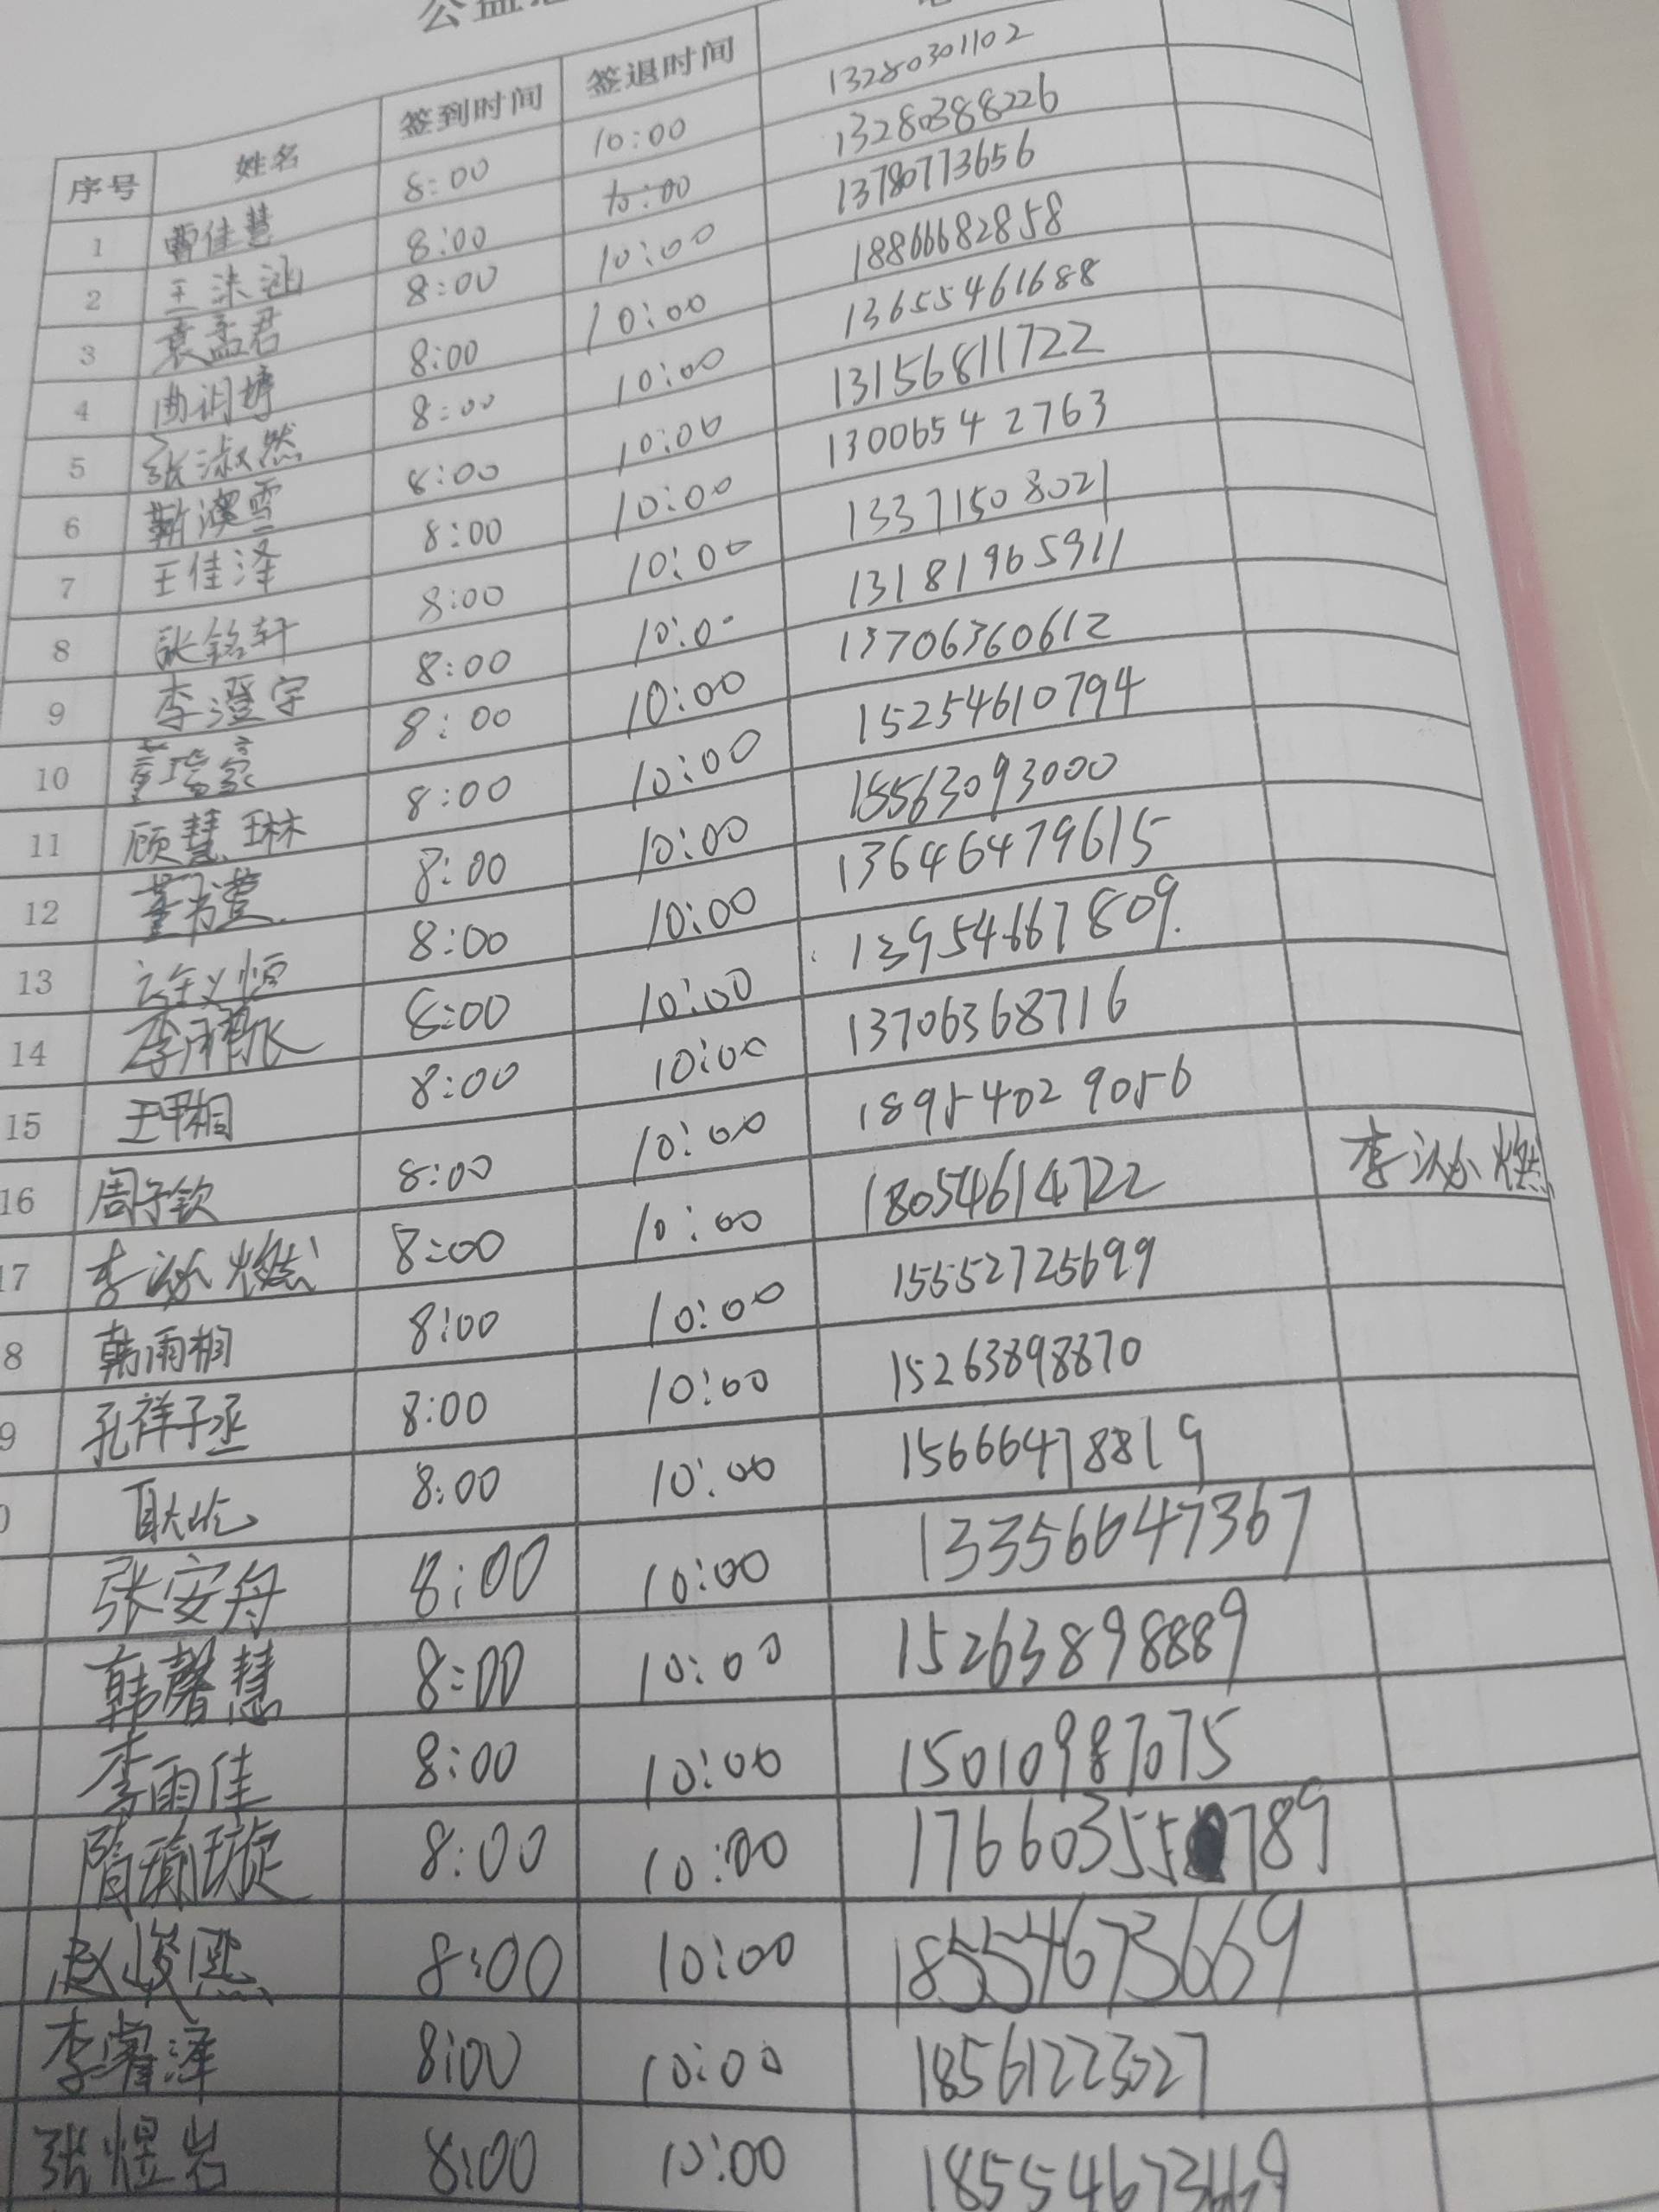 公益
序号 姓名 签到时间 签退时间
1 曹佳慧 8:00 10:00 13280301102
2 王沫涵 8:00 10:00 13280388226
3 袁孟君 8:00 10:00 13780773656
4 曲润博 8:00 10:00 18866682858
5 张淑然 8:00 10:00 13655461688
6 靳濮雪 8:00 10:00 13156811722
7 王佳泽 8:00 10:00 13006542763
8 张铭轩 8:00 10:00 13371508021
9 李澄宇 8:00 10:00 13181965911
10 董 8:00 10:00 13706360612
11 顾慧琳 8:00 10:00 15254610794
12 董 8:00 10:00 15563093000
13 义恒 8:00 10:00 13646479615
14 李 8:00 10:00 13954667809.
15 王 桐 8:00 10:00 13706368716
16 周子钦 8:00 10:00 18954029056
17 李泳燃 8:00 10:00 18054614722 李泳燃
8 韩雨桐 8:00 10:00 15552725699
9 孔祥子丞 8:00 10:00 15263898870
8:00 10:00 15666478819
张安舟 8:00 10:00 13356647367
韩馨慧 8:00 10:00 15263898889
李雨佳 8:00 10:00 15010987075
隋瑜璇 8:00 10:00 1766035 789
赵峻熙 8:00 10:00 18554673669
李睿泽 8:00 10:00 18561223027
张煜岩 8:00 10:00 18554673669